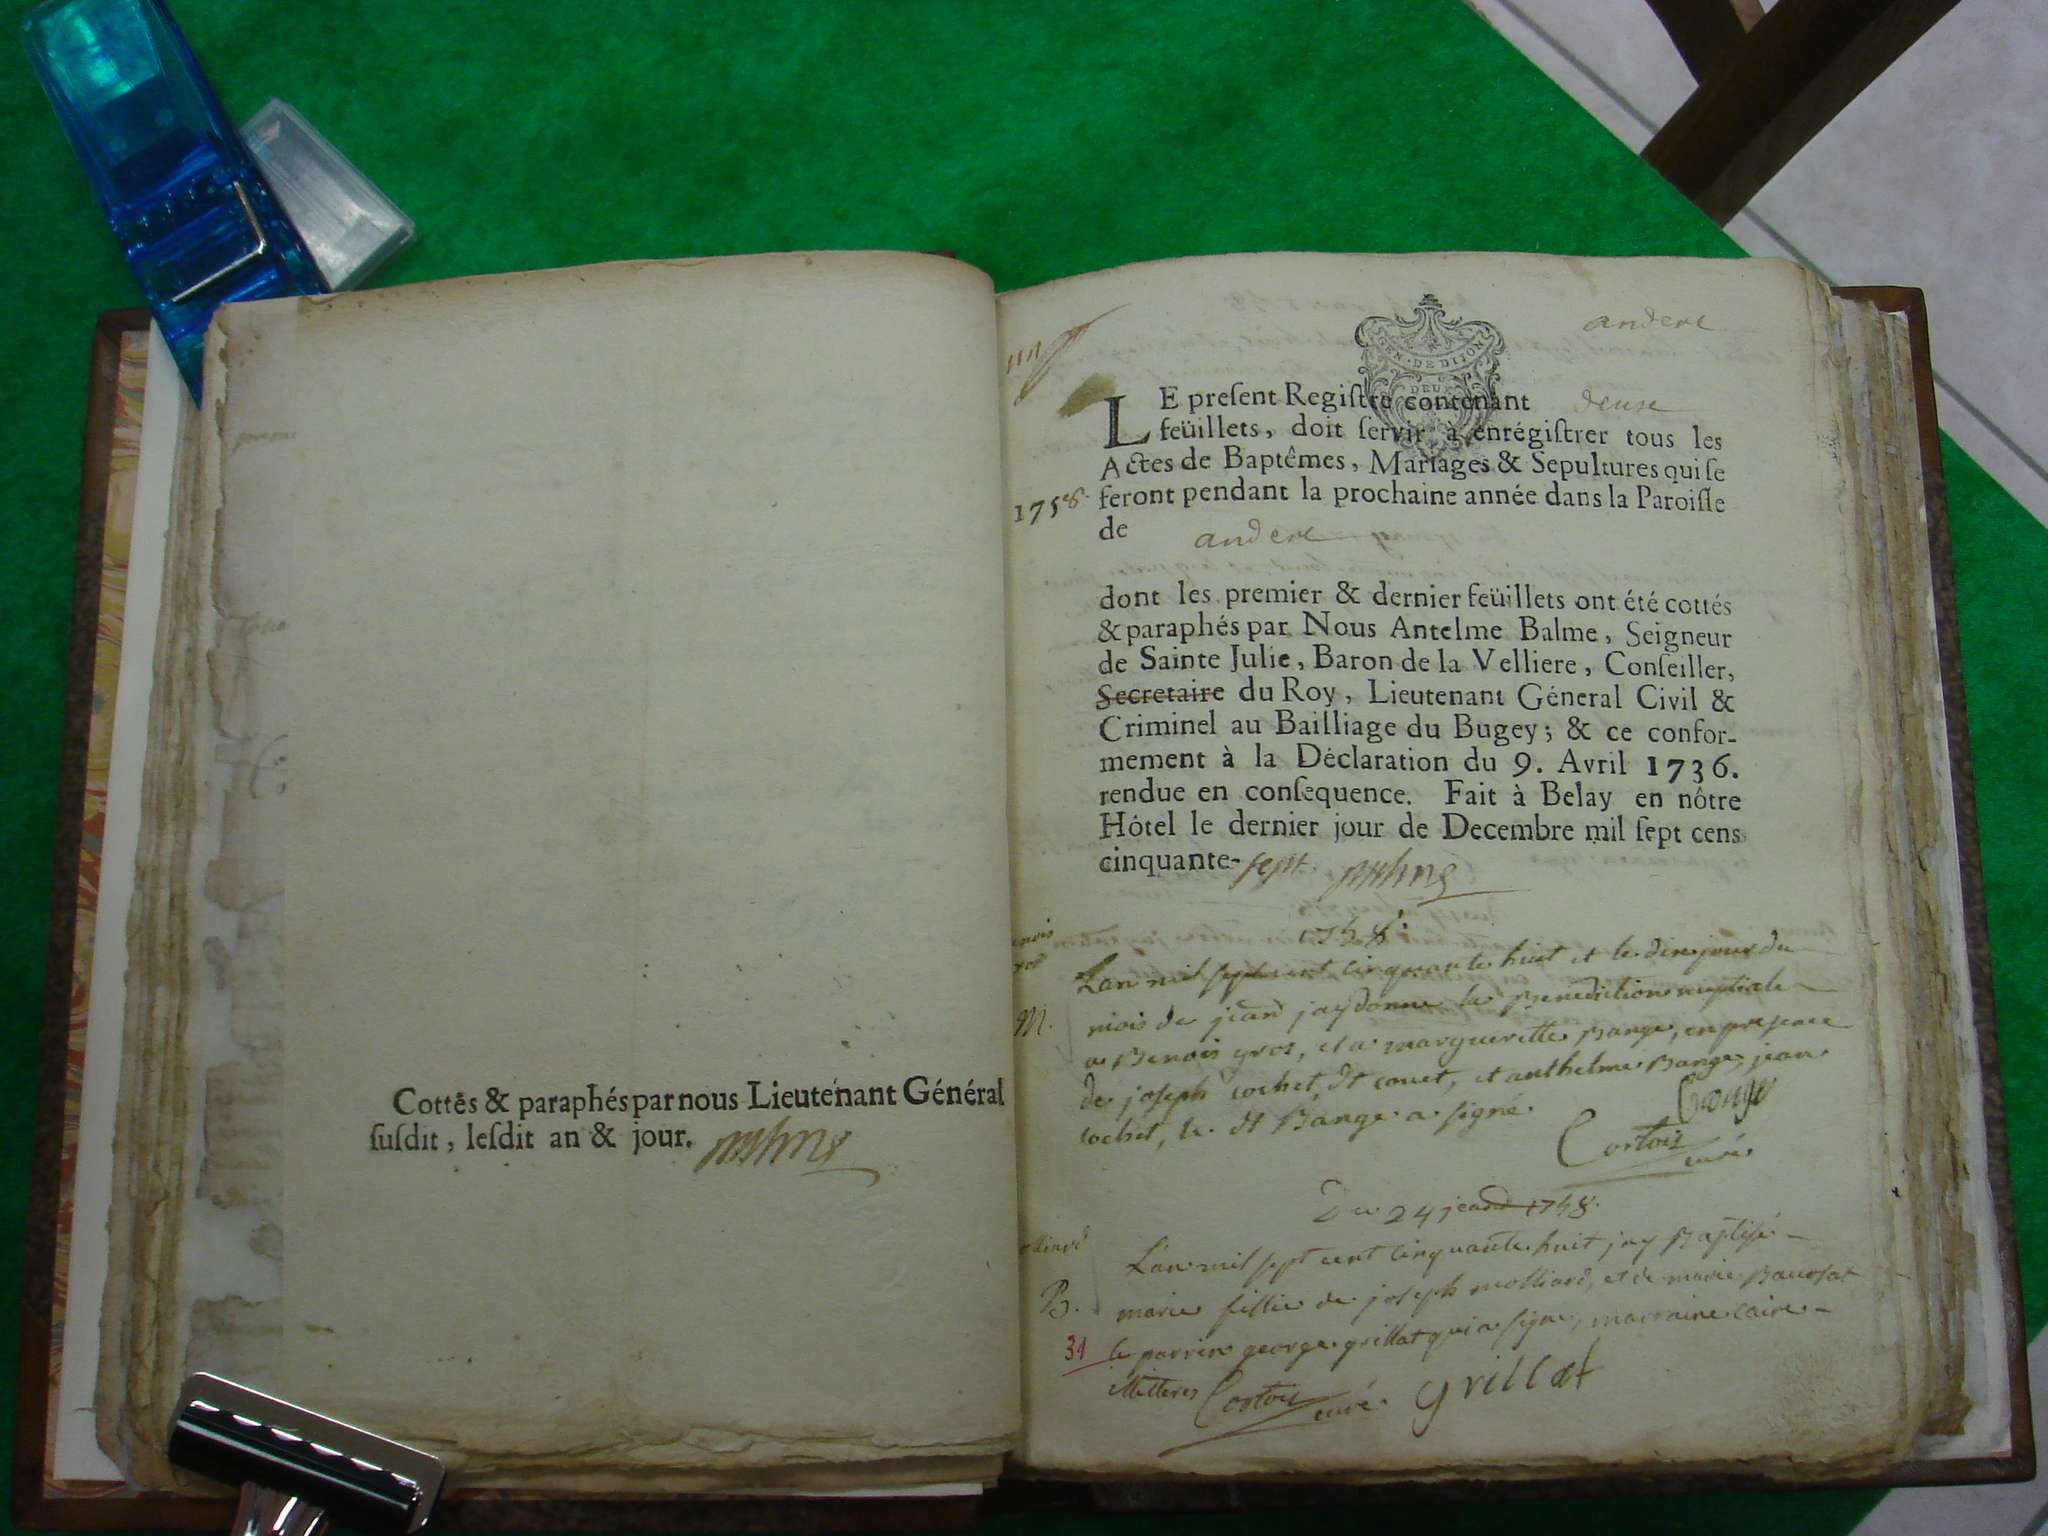 Cottés & paraphés par nous Lieutenant Général
ſuſdit, leſdit an & jour.
andert
GEN · DE DIJON
DEUX
LE preſent Regiſtre contenant deuse
feüillets, doit ſervir à enrégiſtrer tous les
Actes de Baptêmes, Mariages & Sepultures qui ſe
1758.
feront pendant la prochaine année dans la Paroiſſe
de andert
dont les premier & dernier feüillets ont été cottés
& paraphés par Nous Antelme Balme, Seigneur
de Sainte Julie, Baron de la Velliere, Conſeiller,
Secretaire du Roy, Lieutenant Géneral Civil &
Criminel au Bailliage du Bugey; & ce confor-
mement à la Déclaration du 9. Avril 1736.
rendue en conſequence. Fait à Belay en nôtre
Hôtel le dernier jour de Decembre mil ſept cens
cinquante-sept.
1758.
Lan mil sept cent cinquante huit et le dix jour du
M.
mois de janv jay donné la Benediction nuptiale
a Benois gros, et a marguerette Bange, en presence
de joseph cochet, dt couet, et anthelme Bange, jean
cochet, le dt Bange a signé.
Bange
Cortois curé.
Du 24 janv 1758.
Lan mil sept cent cinquante huit jay Baptisé
B.
marie fillie de joseph molliard, et de marie Baccofat
31
le parrin george grillat qui a signe, marraine claire
Cortois curé. grillat